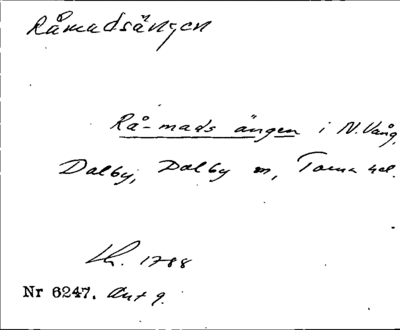 Råmadsängen
Rå-mads ängen i N. Vång,
Dalby, Dalby sn, Torna hd.
Lh. 1788
Nr 6247. Akt 9.